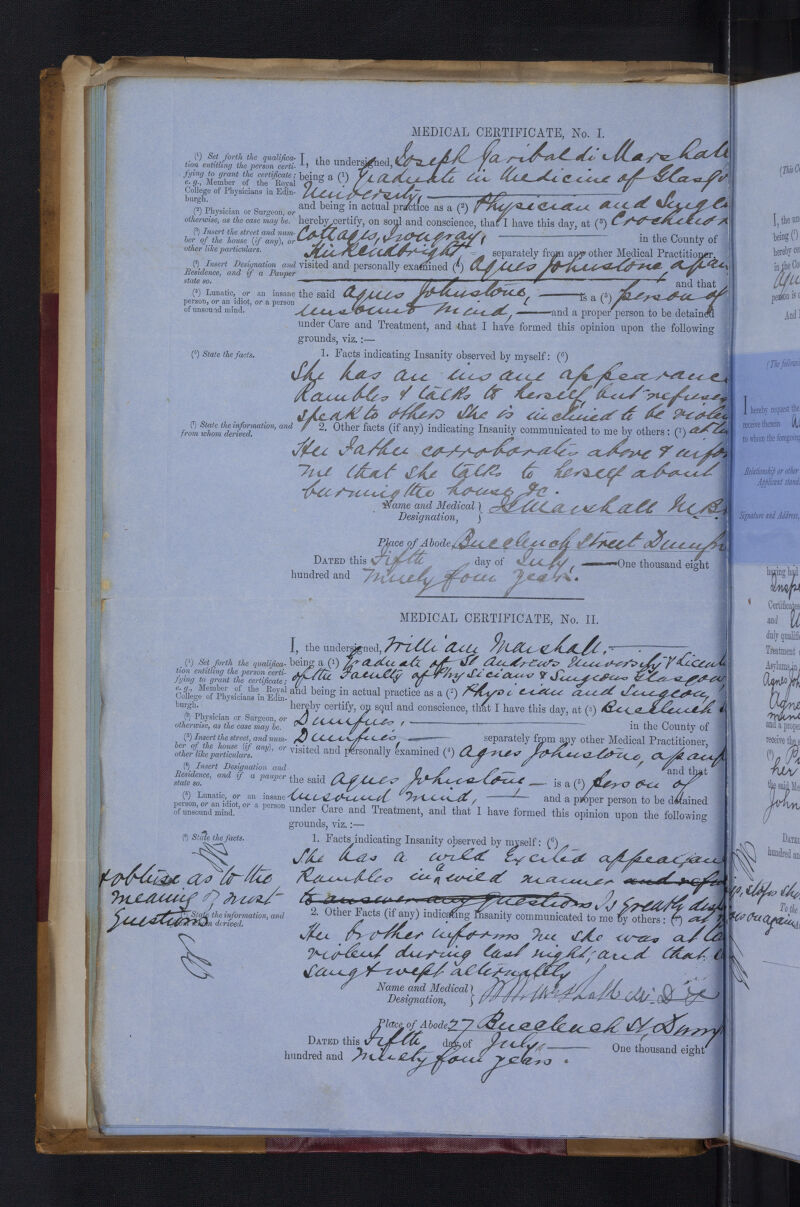 MEDICAL CERTIFICATE, No. I.
(¹) Set forth the qualifica-
tion entitling the person certi-
fying to grant the certificate;
e.g., Member of the Royal
College of Physicians in Edin-
burgh.
(²) Physician or Surgeon, or
otherwise, as the case may be.
(³) Insert the street and num-
ber of the house (if any), or
other like particulars.
(⁴) Insert Designation and
Residence, and if a Pauper
state so.
(⁵) Lunatic, or an insane
person, or an idiot, or a person
of unsound mind.
(⁶) State the facts.
(⁷) State the information, and
from whom derived.
I, the undersigned, Joseph Garibaldi Marshall
being a (¹) Graduate in Medicine of Glasgo
University,
and being in actual practice as a (²) Physician and Surgeo
hereby certify, on soul and conscience, that I have this day, at (³) Crochmor
Cottages, Irongray, in the County of
Kirkcudbright separately from any other Medical Practitioner,
visited and personally examined (⁴) Agnes Johnstone, a pau
and that
the said Agnes Johnstone, is a (⁵) person of
unsound mind, and a proper person to be detained
under Care and Treatment, and that I have formed this opinion upon the following
grounds, viz.:—
1. Facts indicating Insanity observed by myself: (⁶)
She has an insane appearance
Rambles & talks to herself but refuses
speak to others She is inclined to be violen
2. Other facts (if any) indicating Insanity communicated to me by others: (⁷) at
Her Father corroborates above & info
me that she talks to herself about
burning the house &c.
Name and Medical Designation, JG Marshall M.B.
Place of Abode Buccleuch Street Dumfr
DATED this Fifth day of July, One thousand eight
hundred and Ninety four years.
MEDICAL CERTIFICATE, No. II.
(¹) Set forth the qualifica-
tion entitling the person certi-
fying to grant the certificate;
e.g., Member of the Royal
College of Physicians in Edin-
burgh.
(²) Physician or Surgeon, or
otherwise, as the case may be.
(³) Insert the street and num-
ber of the house (if any), or
other like particulars.
(⁴) Insert Designation and
Residence, and if a pauper
state so.
(⁵) Lunatic, or an insane
person, or an idiot, or a person
of unsound mind.
(⁶) State the facts.
& obtuse as to the
meaning of most
Questions
(⁷) State the information, and
from whom derived.
I, the undersigned, William Marshall.
being a (¹) Graduate of St Andrews University & Licent
of the Faculty of Physicians & Surgeons Glasgow
and being in actual practice as a (²) Physician and Surgeon,
hereby certify, on soul and conscience, that I have this day, at (³) Buccleuch
Dumfries, in the County of
Dumfries, separately from any other Medical Practitioner,
visited and personally examined (⁴) Agnes Johnstone, a paup
and that
the said Agnes Johnstone is a (⁵) person of
unsound mind, and a proper person to be detained
under Care and Treatment, and that I have formed this opinion upon the following
grounds, viz.:—
1. Facts indicating Insanity observed by myself: (⁶)
She has a wild Excited appearan
Rambles in a wild manner and refu
to answer any questions Is greatly
2. Other Facts (if any) indicating Insanity communicated to me by others: (⁷)
Her brother informs me she was at
violent during last night; and that
sang & wept alternately
Name and Medical Designation, Wm Marshall
Place of Abode 27 Buccleuch St, Dumf
DATED this Fifth day of July One thousand eight
hundred and Ninety four years.
I, the un
being (¹)
hereby ce
person is
And I
I hereby request the
receive therein
to whom the foregoing
Relationship or other
Applicant stand
Signature and Address,
Certificates
and
duly qualifi
Treatment
Asylums
Agnes Joh
and a proper
receive the
her
the said
John
DATED
hundred an
To the